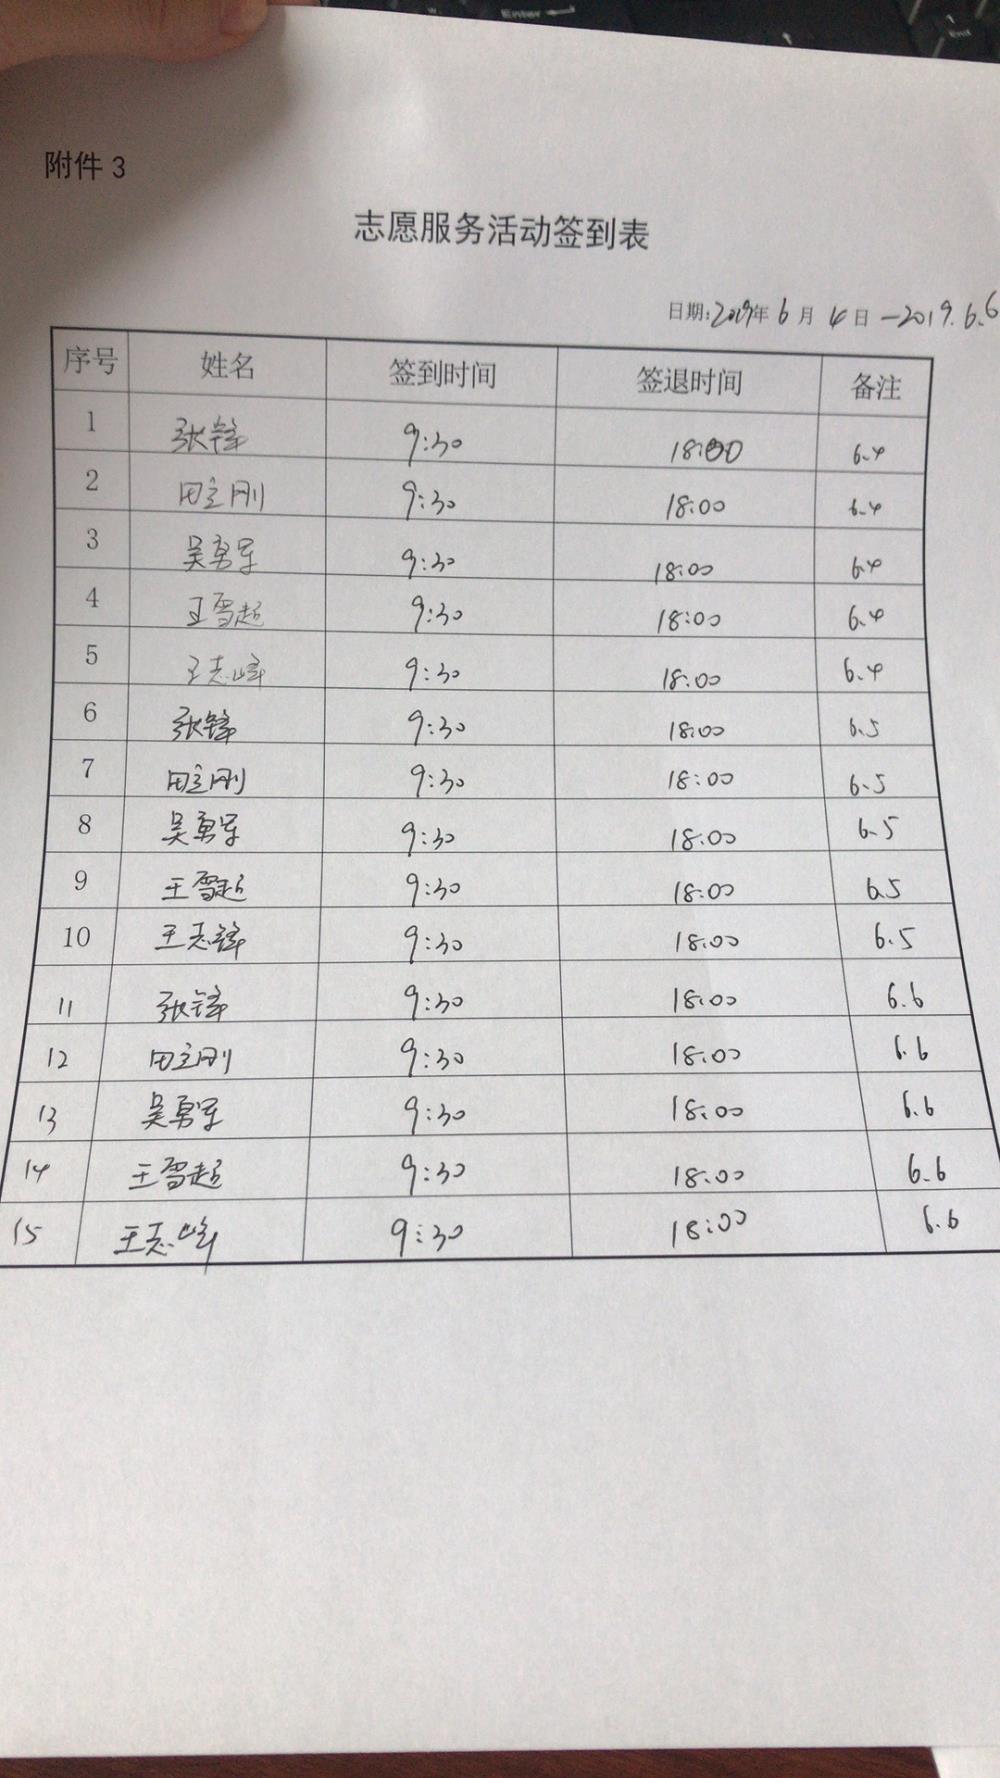 附件 3
志愿服务活动签到表
日期:2019年 6 月 4 日 -2019.6.6
序号 姓名 签到时间 签退时间 备注
1 张锋 9:30 18:00 6.4
2 田立刚 9:30 18:00 6.4
3 吴勇军 9:30 18:00 6.4
4 王雪超 9:30 18:00 6.4
5 王志峰 9:30 18:00 6.4
6 张锋 9:30 18:00 6.5
7 田立刚 9:30 18:00 6.5
8 吴勇军 9:30 18:00 6.5
9 王雪超 9:30 18:00 6.5
10 王志锋 9:30 18:00 6.5
11 张锋 9:30 18:00 6.6
12 田立刚 9:30 18:00 6.6
13 吴勇军 9:30 18:00 6.6
14 王雪超 9:30 18:00 6.6
15 王志峰 9:30 18:00 6.6
Enter
End